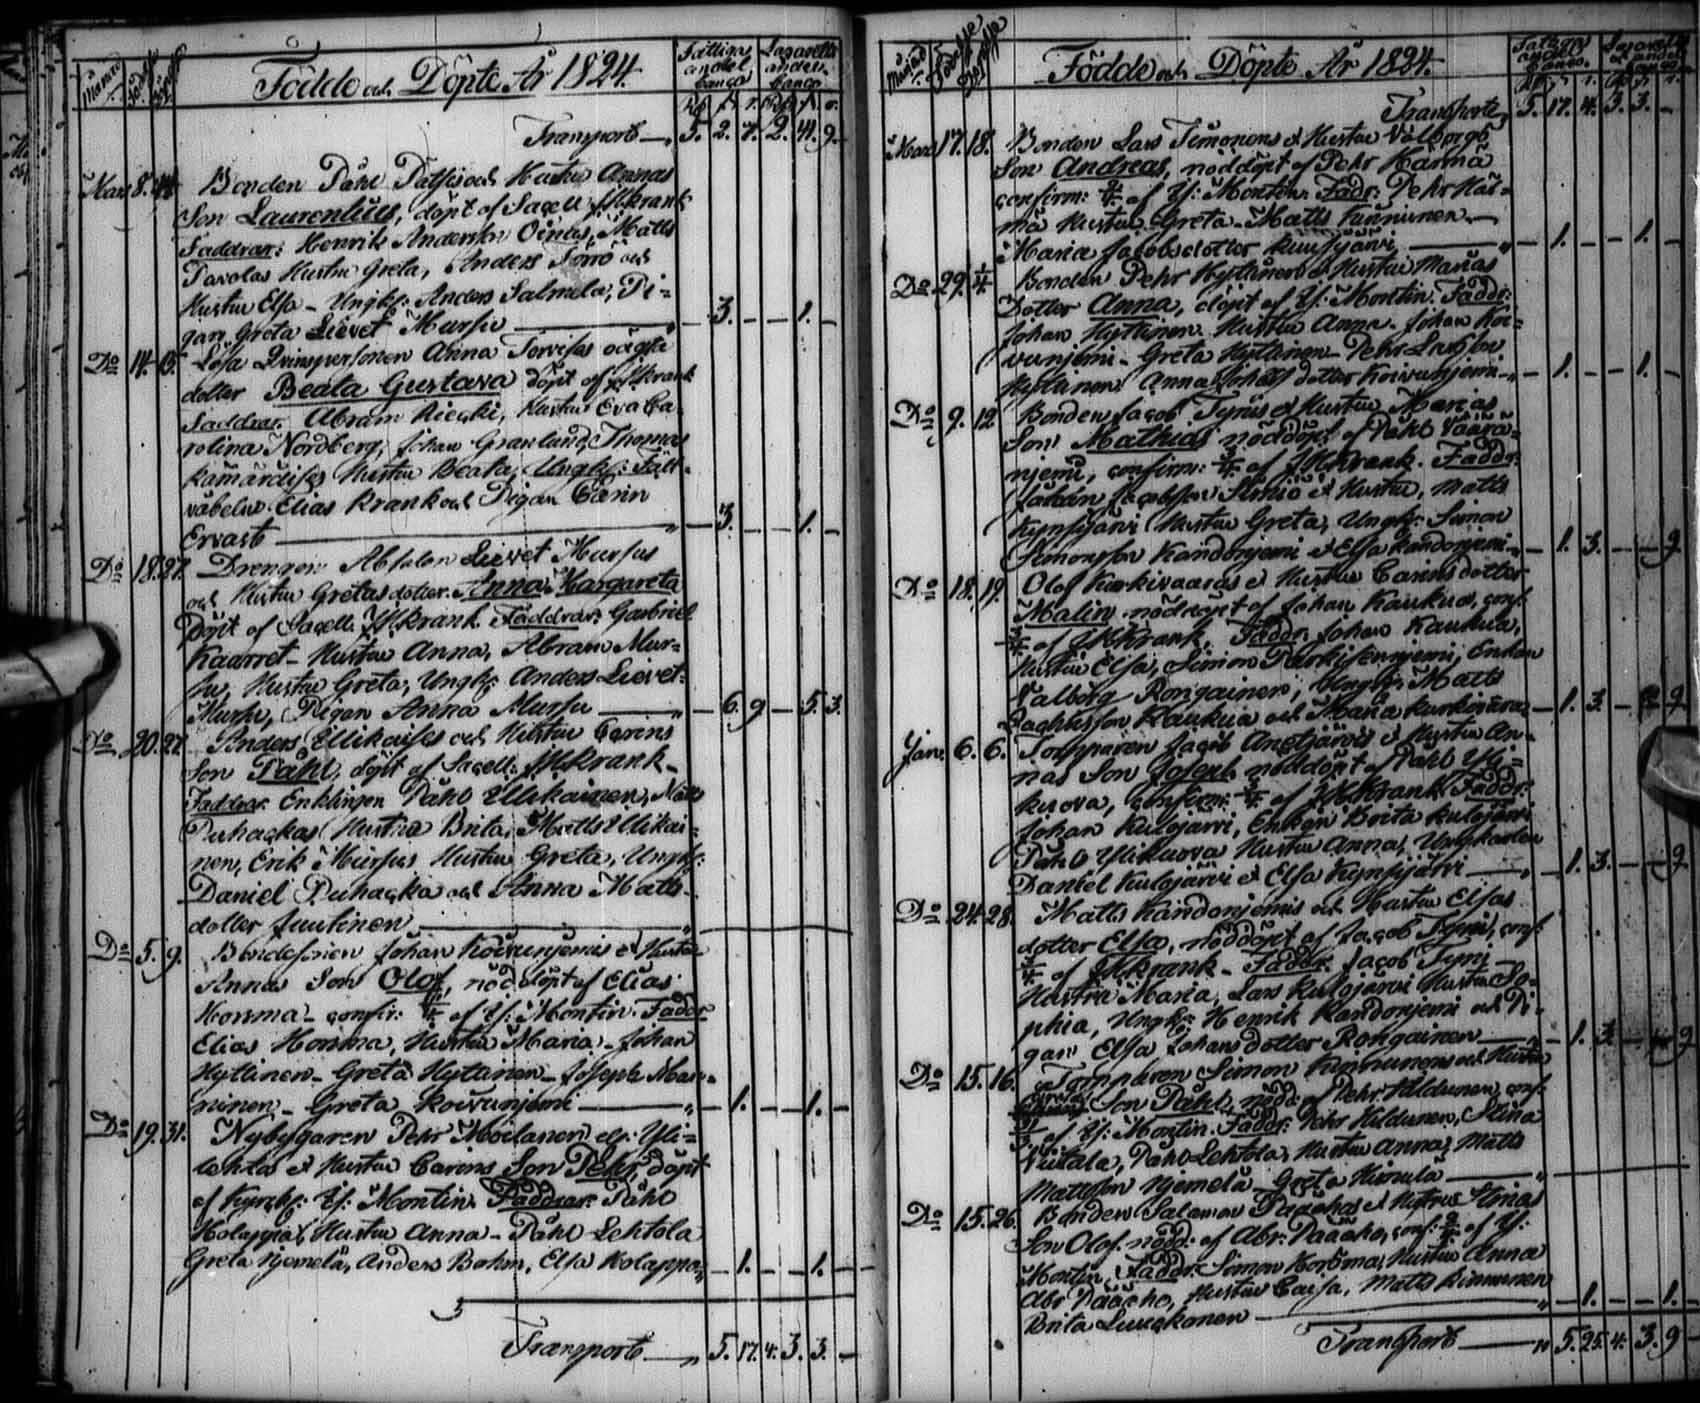 Månad Födelse Döpelse
Födde och Döpte År 1824.
Fattigas andel banco
Lazaretts andel banco
Transport — 5. 2. 7. 2. 41. 9.
Mars 8. 14 Bonden Påhl Patsis och Hustru Annas
Son Laurentius, döpt af Sacell. JKrank
Faddrar: Henrik Andersson Oinas, Matts
Pavolas Hustru Greta, Anders Törrö och
Hustru Elsa - Ungk: Anders Salmela, Pi=
gan Greta Lievet Mursu — 3. — — 1. —
Do 14. 15. Lösa Qvinspersonen Anna Torvisas oägta
dotter Beata Gustava döpt af JKrank
Faddrar. Abram Riecki, Hustru Eva Ca-
rolina Nordberg, Johan Granlund, Thomas
Hustru Beata, Ungk: Fält-
väbelns Elias Krank och Pigan Carin
Ervast — 3. — — 1. —
Do 18. 27. Drengen Absalon Lievet Mursus
och Hustru Gretas dotter Anna Margareta
Döpt af Sacell. JKrank Faddrar: Gabriel
Kaarret - Hustru Anna, Abram Mur-
su, Hustru Greta, Ungk: Anders Lievet-
Mursu, Pigan Anna Mursu — 6. 9 — 5. 3.
Do 20. 27. Anders Ellikaises och Hustru Carins
Son Påhl, döpt af Sacell. JKrank -
Faddrar. Enklingen Påhl Ellikainen, Matts
Puhackas Hustru Brita, Matts Ellikai=
nen, Erik Mursus Hustru Greta, Ungk:
Daniel Puhacka och Anna Matts-
dotter Juutinen —
Do 5. 9. Bondesonen Johan Koivunjemis et Hustru
Annas Son Olof, nöddöpt af Elias
Horsma - confir: af Y: Montin. Faddr
Elias Horsma, Hustru Maria - Johan
Hyttinen - Greta Hyttinen - Joseph Man=
ninen - Greta Koivunjemi — 1. — — 1. —
Do 19. 31. Nybygaren Pehr Moilanen elr: Yli=
lehto et Hustru Carins Son Pehr, döpt
af Kyrckh: Y: Montin Faddrar: Påhl
Holappa, Hustru Anna - Påhl Lehtola
Greta Njemelä, Anders Bohm, Elsa Holappa — 1. — — 1. —
Transport — 5. 17. 4. 3. 3. —
Månad Födelse Döpelse
Födde och Döpte År 1824.
Fattigas andel banco.
Lazaretts andel banco
Transport 5. 17. 4. 3. 3. —
Mars 17. 18. Bonden Lars Timonens et Hustru Valborgs
Son Andreas, nöddöpt af Pehr Härmä
confirm: af Y: Montin. Fadr: Pehr Här=
mä Hustru Greta - Matts Kinnunen —
Maria Jacobsdotter Kuusijärvi — 1. — — 1. —
Do 29. 1/4 Bonden Pehr Hyttinens et Hustru Marias
Dotter Anna, döpt af Y: Montin. Faddr:
Johan Hyttinen Hustru Anna - Johan Koi=
vunjemi - Greta Hyttinen - Pehr Larsson
Hyttinen Anna Johansdotter Koivunjemi — 1. — — 1. —
Do 9. 12 Bonden Jacob Tynis et Hustru Marias
Son Mathias nöddöpt af Påhl Vaara=
njemi, confirm: 3/4 af JKrank. Faddr:
Johan Jacobsson et Hustru, Matts
Kynsijärvi Hustru Greta, Ungk: Simon
Simonsson Kandonjemi et Elsa Kandonjemi — 1. 3. — — 9
Do 18. 19. Olof Kurkivaaras et Hustru Carins dotter
Malin nöddöpt af Johan Kaukua, conf.
3/4 af JKrank. Faddr: Johan Kaukua,
Hustru Elsa, Simon Enkan
Valborg Rongainen, Ungk: Matts
Kaukua och Maria Kurkivara — 1. 3. — — 9
Janv. 6. 6. Torpparen Jacob Anetjärvis et Hustru An-
nas Son Joseph nöddöpt af Påhl Yli=
kuova, confirm: 3/4 af JKrank Faddr:
Johan Kulojärvi, Enkan Brita Kulojärvi
Påhl Ylikuova Hustru Anna, Ungkarlen
Daniel Kulojärvi et Elsa Kynsijärvi — 1. 3. — — 9
Do 24. 28. Matts Kandonjemis och Hustru Elsas
dotter Elsa, nöddöpt af Jacob Tyni, conf.
3/4 af JKrank - Faddr. Jacob Tyni
Hustru Maria, Lars Kulojärvi Hustru So-
phia, Ungk: Henrik Kandonjemi och Pi-
gan Elsa Johansdotter Rongainen — 1. 3. — — 9
Do 15. 16. Torpparen Simon Kinnunens och Hustru
Son Påhl, nödd: af Pehr Hildunen, conf:
af Y: Montin. Faddr: Pehr Hildunen, Stina
Viitala, Påhl Lehtola, Hustru Anna, Matts
Mattsson Njemelä Greta Kimula —
Do 15. 26. Bonden Salomon Pääckös et Hustrus Stinas
Son Olof nödd. af Abr: Pääckö, conf: af Y:
Montin, Faddr. Simon Horsma, Hustru Anna
Abr Pääckö, Hustru Caisa, Matts Kinnunen
Brita Luuckonen — 1. — — 1. —
Transport — 5. 25. 4. 3. 9 —